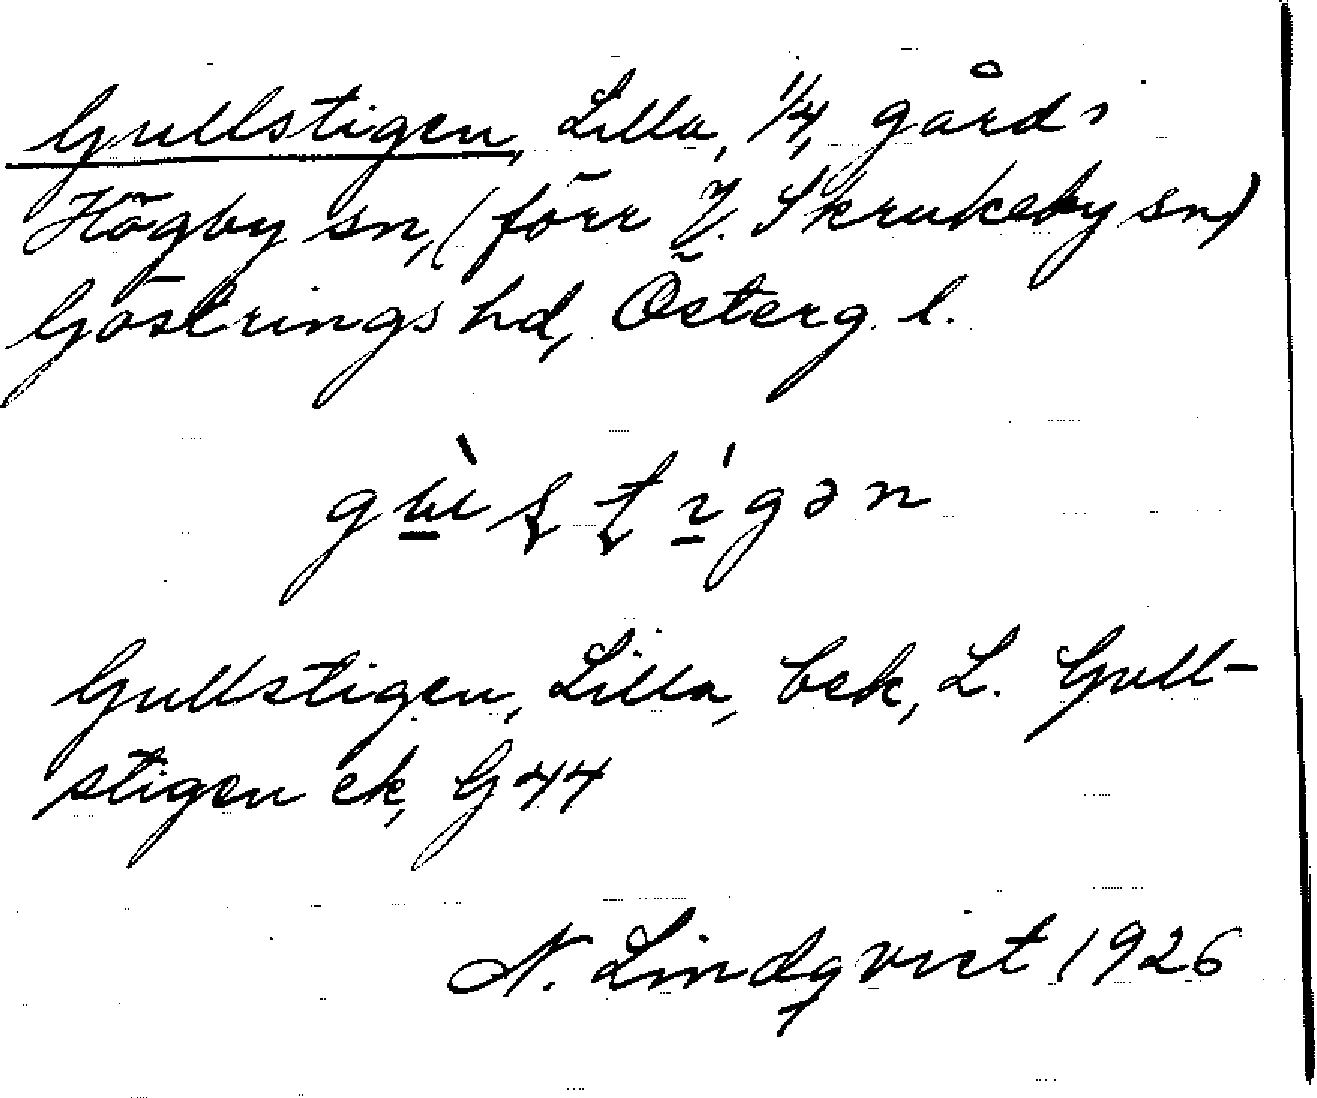 Gullstigen, Lilla, 1/4, gård i
Högby sn, (förr V. Skrukeby sn)
Göstrings hd, Österg. l.
Gullstigen, Lilla, bek, L. Gull-
stigen ek, G 44
N. Lindqvist 1926